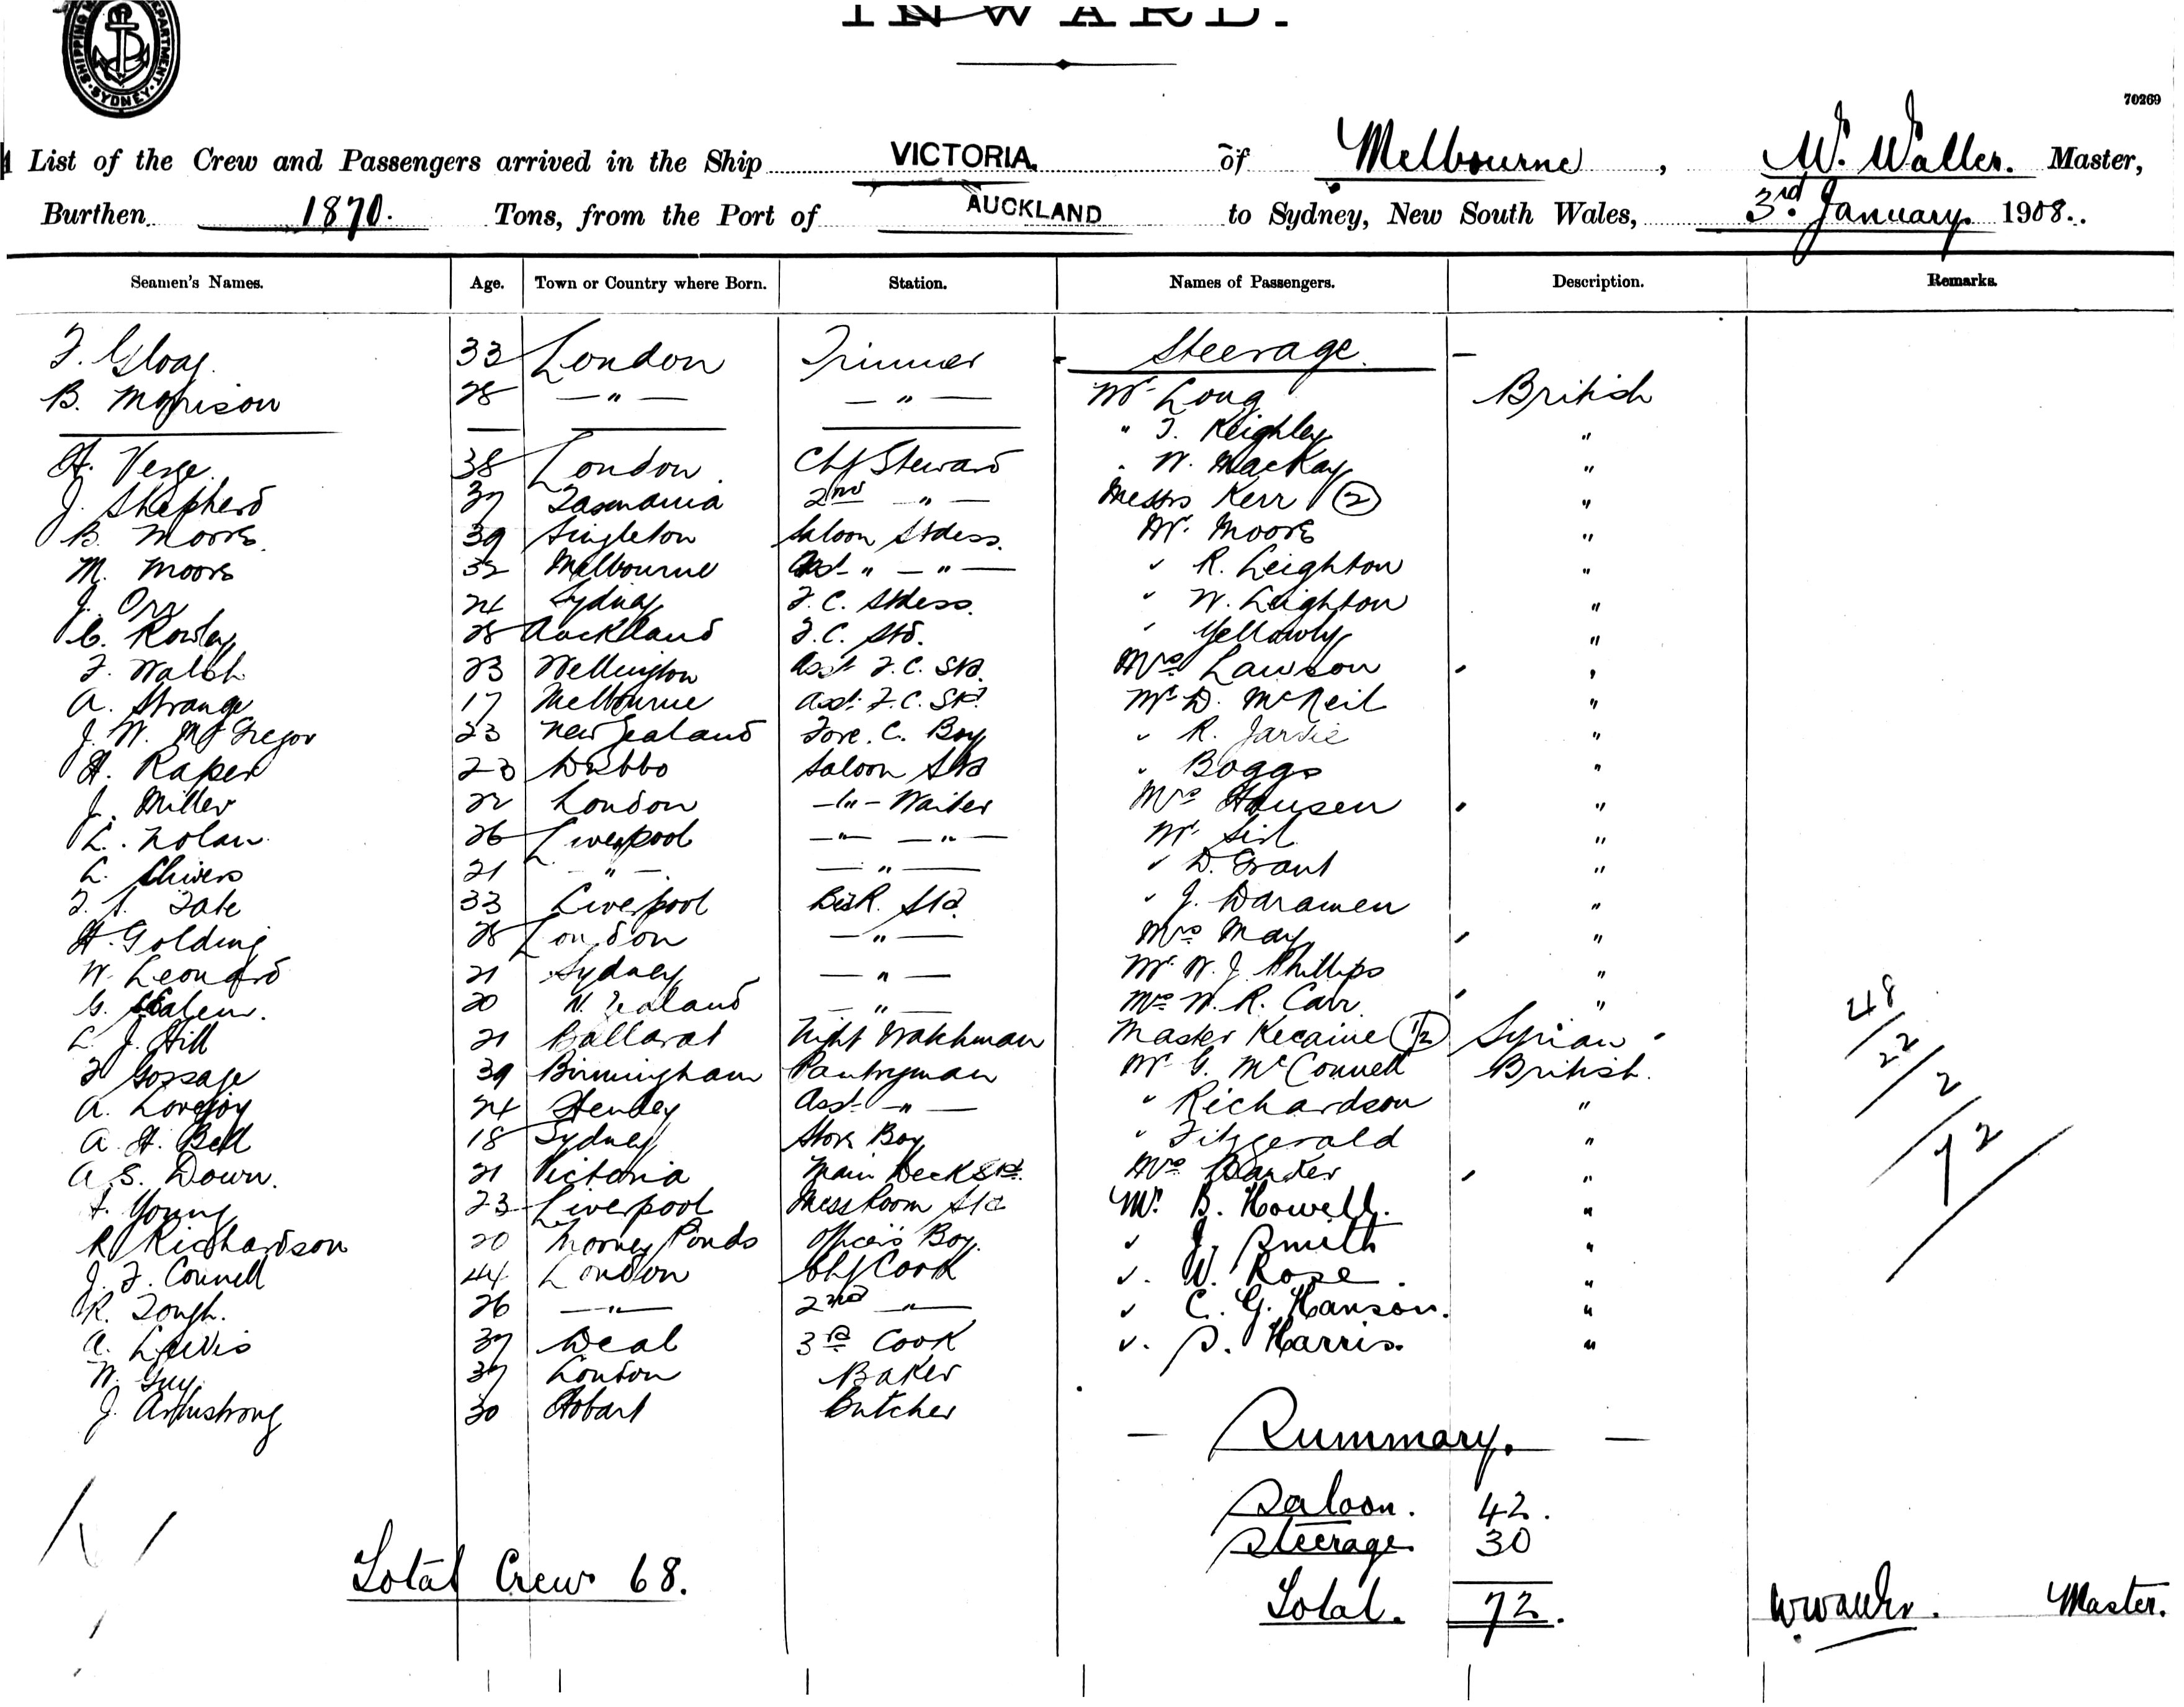 INWARD.
SHIPPING DEPARTMENT SYDNEY
70269
List of the Crew and Passengers arrived in the Ship VICTORIA. of Melbourne, W. Waller. Master,
Burthen 1870. Tons, from the Port of AUCKLAND to Sydney, New South Wales, 3rd January 1908.
Seamen's Names. Age. Town or Country where Born. Station. Names of Passengers. Description. Remarks.
33 London Trimmer Steerage —
B. Morrison 28 — " — — " — Mr Long British
" T. Keighley "
H. Verge 38 London Chf Steward " W. MacKay "
J. Shepherd 37 Tasmania 2nd " — Messrs Kerr (2) "
B. Moore 39 Singleton Saloon Stdess. Mr. Moore "
M. Moore 32 Melbourne Asst " — " — " R. Leighton "
J. Orr 24 Sydney F.C. Stdess. " W. Leighton "
C. Rowley 28 Auckland F.C. Std. " Yellowly "
F. Walsh 23 Wellington Asst F.C. Std. Mrs Lawson "
A. Strange 17 Melbourne Asst F.C. Std. Mr D. McNeil "
J. W. McGregor 23 New Zealand Fore. C. Boy " R. Jarvie "
H. Raper 23 Dubbo Saloon Std " Boggs "
J. Miller 22 London — " — Waiter Mrs Hansen "
L. Nolan 26 Liverpool — " — " — Mr "
L. Chivers 21 — " — — " — " D. Grant "
F. S. Tate 33 Liverpool BedR. Std. " J. Daramen "
H. Golding 28 London — " — Mrs May "
W. Leonard 21 Sydney — " — Mr. W. J. Phillips "
G. 20 N. Zealand — " — W. R. Carr "
L. J. Hill 21 Ballarat Night Watchman Master Kecaine (1/2) Syrian
F. Gossage 39 Birmingham Pantryman Mr G. McConnell British.
A. Lovejoy 24 Henley Asst — " — " Richardson "
A. H. Bell 18 Sydney Store Boy " Fitzgerald "
A. S. Down. 21 Victoria Main Deck Std. Mrs Barker "
Young 23 Liverpool Mess Room Std Mr. B. Howell. "
R. Richardson 20 Moonee Ponds Officers Boy. " J. Smith "
J. F. Connell 44 London Chf Cook " W. Rose. "
R. Tough. 26 — " — 2nd " — " C. G. Hanson. "
A. Lewis 37 Deal 3rd Cook " S. Harris. "
W. Guy. 37 London Baker
J. Armstrong 30 Hobart Butcher
48/22/2/72
— Summary. —
Saloon. 42.
Steerage. 30
Total Crew 68.
Total. 72.
W Waller. Master.